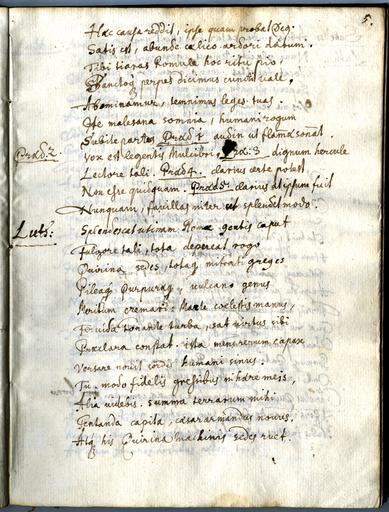 5.
Hac causa reddit, ipse quam probat Deq.
Satis est, abunde cælico ardori datum.
Tibi tiaras Romule hoc ritu pio
Sanctoq perpes dicimus cuncti vale,
Abominamur, temnimus leges tuas.
Ite malesana somnia, humani rogum
Subite partus. Prod: 1 audin ut flamma sonat.
Prod: 2. vox est legentis Mulcibri, Prod: 3 dignum hercule
Lectore tali. Prod 4. clarius certe potest
Non esse quicquam. Prod: 5. clarius Aetypum fuit
Nunquam, favillas inter ut splendet modo.
Luth: Splendescat utinam Romæ gentis caput
Fulgore tali, tota depereat rogo
Quirina sedes, totaq mitrati greges
Pileaq purpuraq vulcano genus
Meritum cremari. Macte cælestis manus,
Fervida tonante turba, sat virtus tibi
Præclara constat. ista mensurum capax
Versare novit cordis humani sinus.
Tu modo fidelis gressibus inhære meis,
Alia videbis. summa terrarum mihi
Tentanda capita, cæsar armandus novus.
Atq his Quirina machinis sedes ruet.